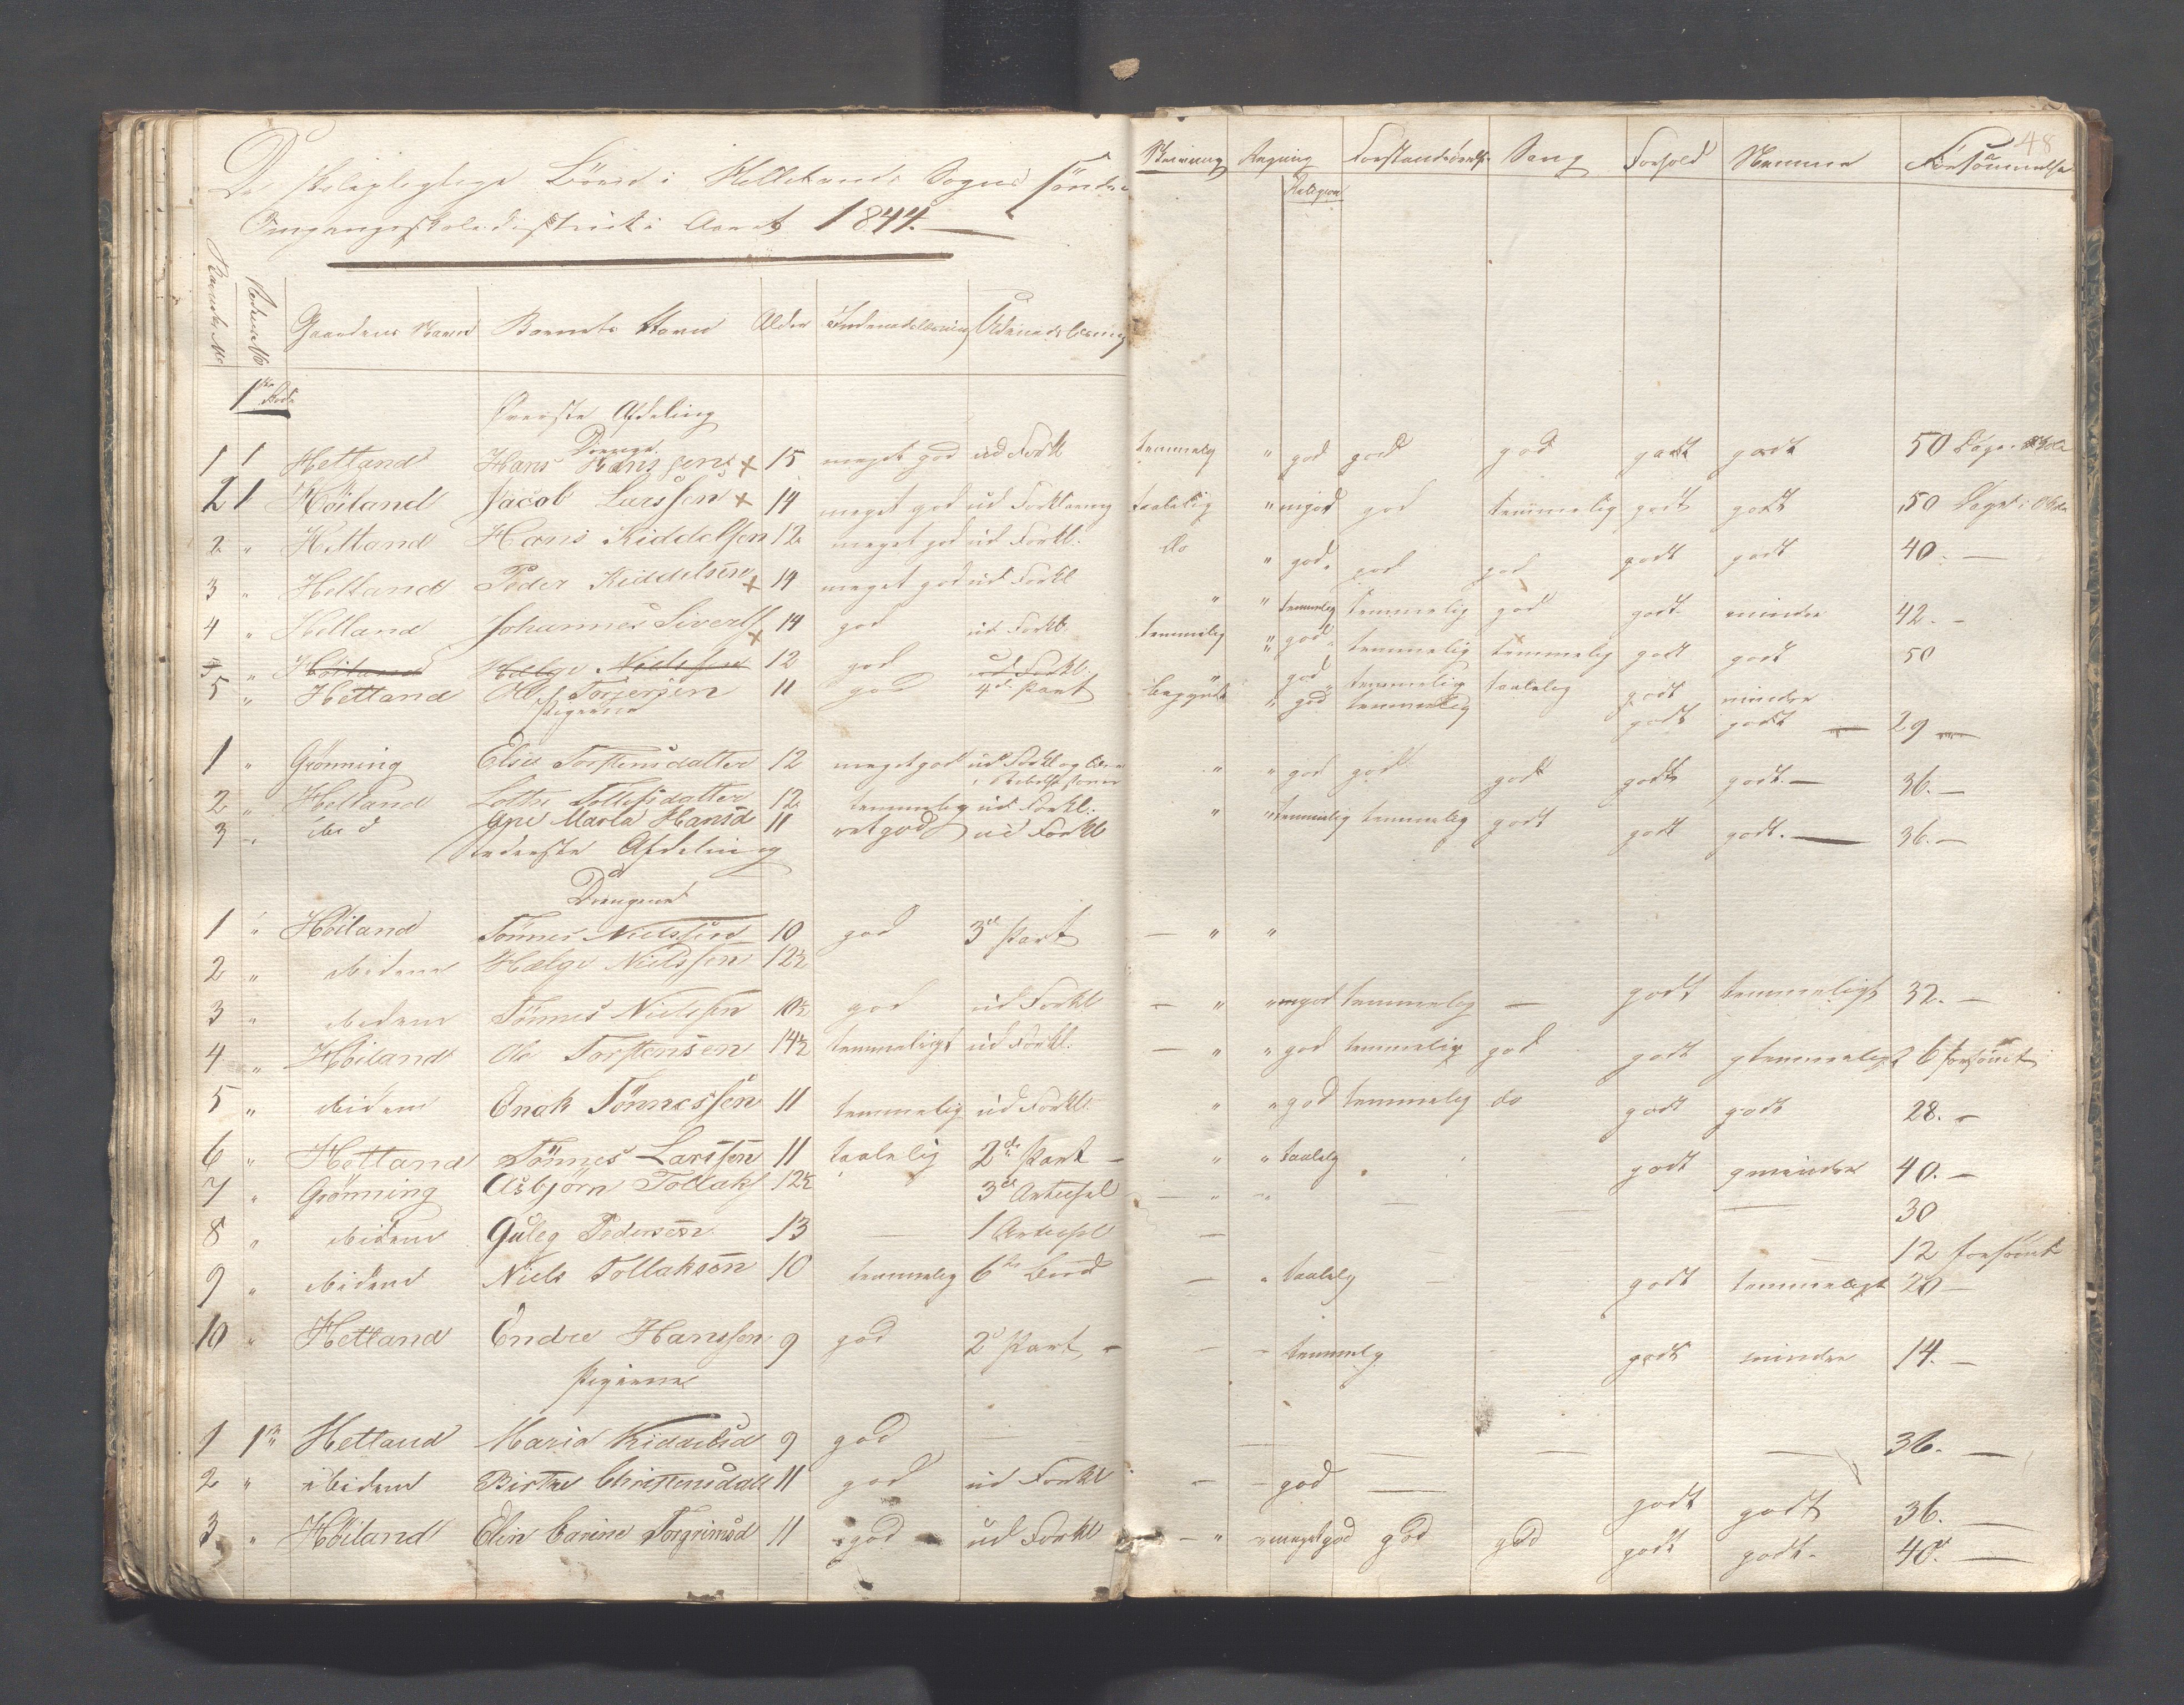 De skolepligtige Börn i Hellelands Sogns söndre
Omgangsskoledistrikt i Aaret 1844.
48
Gaardens Navn Barnets Navn Alder Indenadslæsning Udenadslæsning Skrivning Regning Religion Forstandsövelse Sang Forhold Nemme Forsömmelse
1ste Rode
Överste Afdeling
Drenge
1 1 Hetland Hans Hanssen x 15 meget god ud Forkl temmelig " god god god godt godt 50 Dage
2 1 Höiland Jacob Larssen x 14 meget god ud Forklaring taalelig " mgod god temmelig godt godt 50 Dage
2 " Hetland Hans Kiddelsen 12 meget god ud Forkl. do " god god god godt godt 40. —
3 " Hetland Peder Kiddelsen x 14 meget god ud Forkl " " temmelig temmelig god godt mindre 42. -
4 " Hetland Johannes Siverts x 14 god ud Forkl. temmelig " god temmelig temmelig godt godt 50
5 " Höiland Hælge Nielssen 12 god ud Forkl. " god temmelig taalelig godt mindre
5 " Hetland Ole Torjersen 11 god 4de Part begyndt " god temmelig godt godt — 29 —
Pigerne
1 " Grönning Elsie Torstensdatter 12 meget god ud Forkl og " " god god god godt godt — 36. —
2 " Hetland Lothe Tollefsdatter 12 temmelig ud Forkl. " " temmelig temmelig godt godt godt. — 36. —
3 " ibid Ane Marta Hansd 11 ret god ud Forkl
Nederste Afdeling
Drengene
1 " Höiland Tönnes Nielssen 10 god 3de Part — " "
2 " ibidem Hælge Nielssen 12½
3 " ibidem Tönnes Nielssen 10½ god ud Forkl — " " mgod temmelig — godt temmeligt 32. —
4 " Höiland Ole Torstensen 14½ temmeligt ud Forkl. — " " god temmelig god godt temmeligt 26 forsömt
5 " ibidem Enok Tönnessen 11 temmelig ud Forkl. " " god temmelig do godt godt 28. -
6 " Hetland Tönnes Larssen 11 taalelig 2de Part — " " taalelig godt mindre 40. —
7 " Grönning Asbjörn Tollaks 12½ " 3de Artikel — " - — — — 30
8 " ibidem Guleg Pedersen 13 — 1 Artikel — — 12 forsömt
9 " ibidem Niels Tollaksön 10 temmelig 6te Bud — " taalelig — — godt temmeligt 20 —
10 " Hetland Endre Hanssen 9 god 2de Part - — - temmelig - godt mindre 14. —
Pigerne
1 1ste Hetland Maria Kiddelsd 9 god — — — — — 36. —
2 " ibidem Birthe Christensdatt 11 god ud Forkl — - god — godt godt 36. —
3 " Höiland Elen Carine Torgrimsd 11 god ud Forkl - " " meget god god god godt godt. 40. —